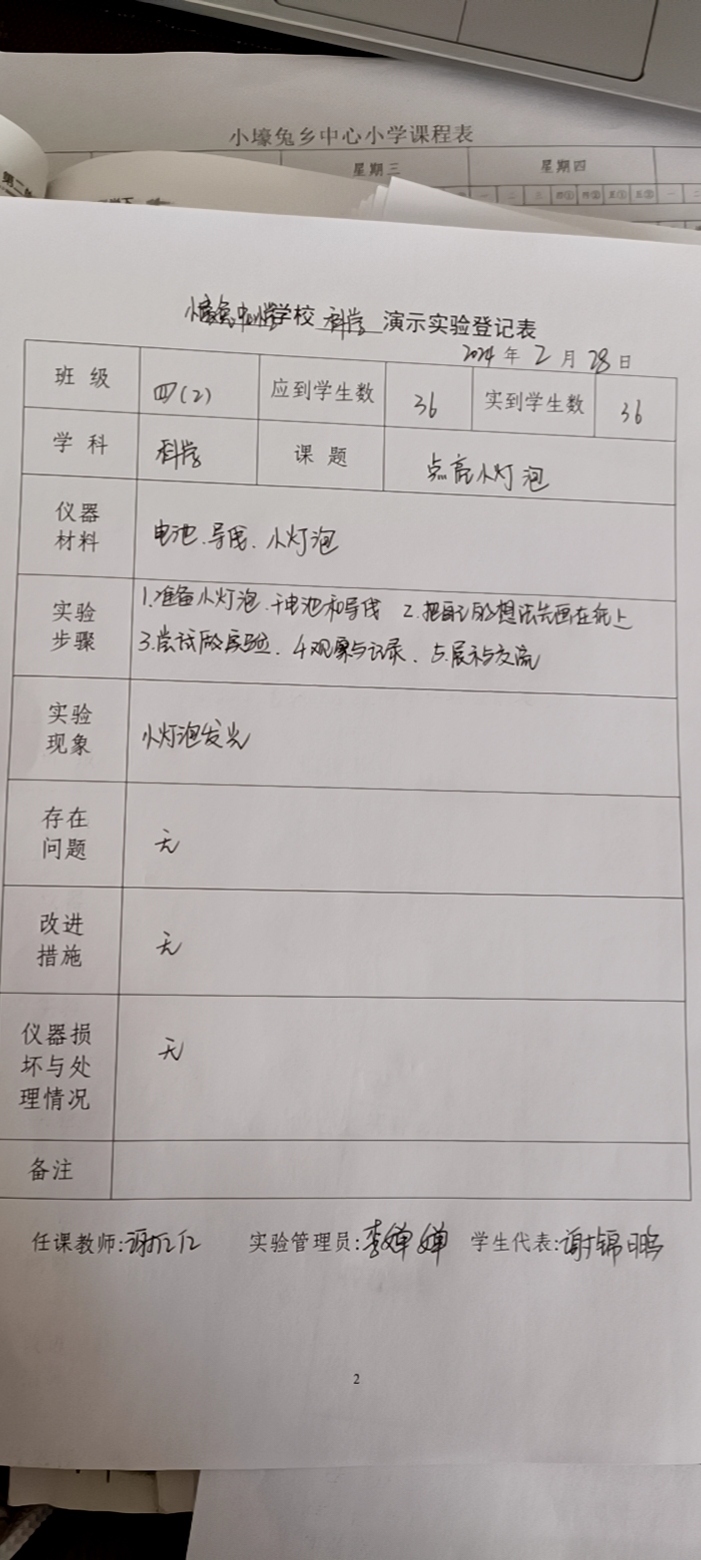 小壕兔乡中心小学课程表
星期三 星期四
第二
一 二 三 四① 四② 五① 五② 一 二
小壕兔中心小学学校 科学 演示实验登记表
2024年2月28日
班级 四(2) 应到学生数 36 实到学生数 36
学科 科学 课题 点亮小灯泡
仪器材料 电池、导线、小灯泡
实验步骤 1.准备小灯泡、干电池和导线 2.把自己的想法先画在纸上
3.尝试做实验、4.观察与记录、5.展示与交流
实验现象 小灯泡发光
存在问题 无
改进措施 无
仪器损坏与处理情况 无
备注
任课教师: 实验管理员:李婵婵 学生代表:谢锦鹏
2